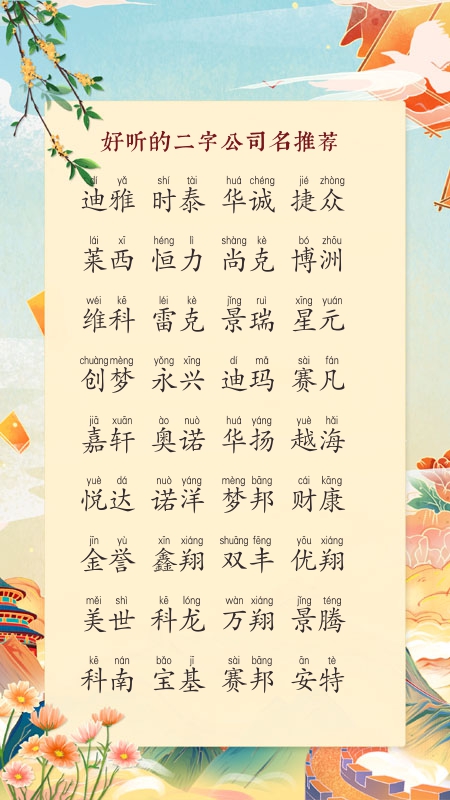 好听的二字公司名推荐
dí yǎ shí tài huá chéng jié zhòng
迪雅 时泰 华诚 捷众
lái xī héng lì shàng kè bó zhōu
莱西 恒力 尚克 博洲
wéi kē léi kè jǐng ruì xīng yuán
维科 雷克 景瑞 星元
chuàng mèng yǒng xīng dí mǎ sài fán
创梦 永兴 迪玛 赛凡
jiā xuān ào nuò huá yáng yuè hǎi
嘉轩 奥诺 华扬 越海
yuè dá nuò yáng mèng bāng cái kāng
悦达 诺洋 梦邦 财康
jīn yù xīn xiáng shuāng fēng yōu xiáng
金誉 鑫翔 双丰 优翔
měi shì kē lóng wàn xiáng jǐng téng
美世 科龙 万翔 景腾
kē nán bǎo jī sài bāng ān tè
科南 宝基 赛邦 安特